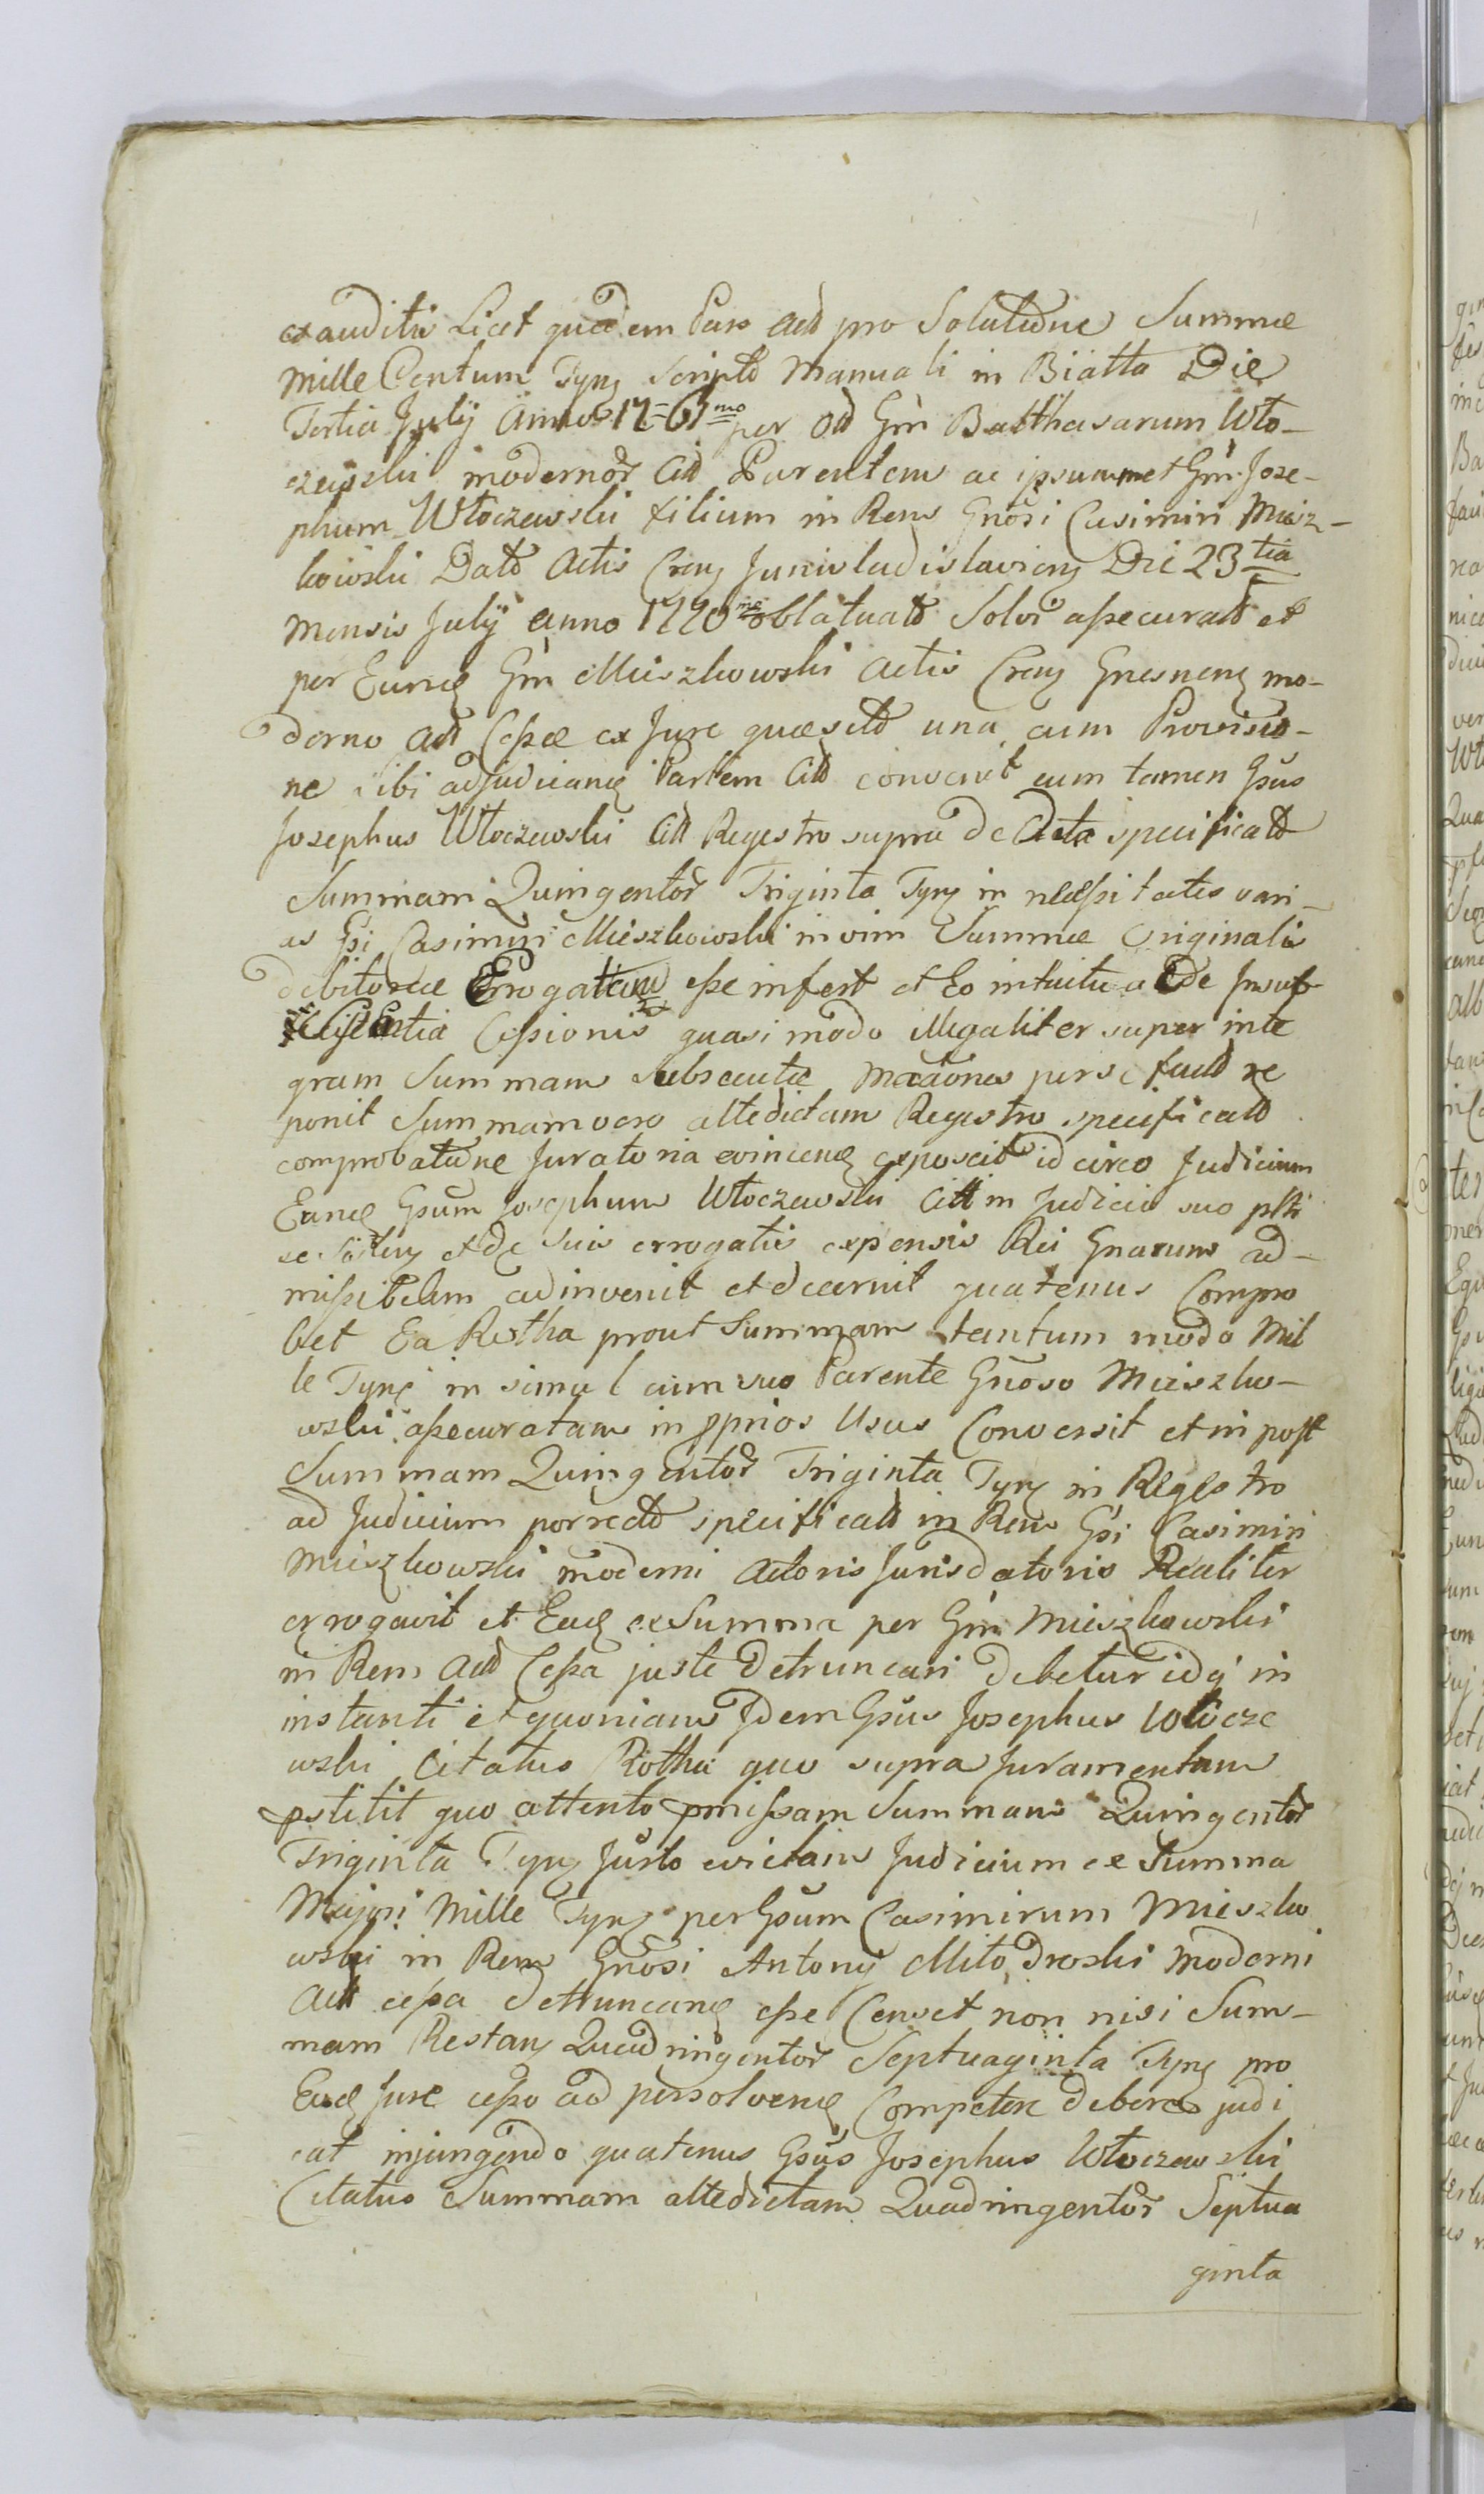 exaudita Licet quidem Pars Actt pro Solutione Summæ
Mille Centum Tynf Scripto Manuali in Biatta Die
Tertia July Anno 1767mo per Od Gñm Balthasarum Wło-
czewski modernor Citt Parentem ac ipsummet Gñm Jose-
phum Włoczewski filium in Rem Gnosi Casimiri Miesz-
kowski Datt Actis Cren Juniwladislavien Die 23tia
Mensis July Anno 1770mo oblatuatt Solvi assecuratt et
per Eund Gñm Mieszkowski Actis Cren Gnesnen mo-
derno Actt Cessæ ex Jure quæsitt una cum Provisio-
ne sibi adjudicand Partem Citt convenit cum tamen Gsus
Josephus Włoczewski Citt Regestro supra de Acta specificatt
Summam Quingentor Triginta Tynf in necessitates vari-
as Gsi Casimiri Mieszkowski in vim Summæ Originalis
debitoreæ Errogatam esse infert et Eo intuitu a de Insuf-
ficientia Cessionis quasi modo illegaliter super inte
gram Summam Subsecutæ per se factt re
ponit Summam vero attedictam Regestro specificatt
comprobatione Juratoria evincend exposcit id circo Judicium
Eund Gsum Josephum Włoczewski Citt in Judicio suo psti
se Sisten et de suis errogatis expensis Rei Gnarum ad-
missibilem adinvenit et decernit quatenus Compro
bet Ea Rotha prout Summam tantum modo Mil
le Tynf in simul cum suo Parente Gnoso Mieszko-
wski assecuratam in pprios Usus Conversit et in post
Summam Quingentor Triginta Tynf in Regestro
ad Judicium porrectt specificatt in Rem Gsi Casimiri
Mieszkowski moderni Actoris Jurisdatoris Realiter
errogavit et Ead ex Summa per Gñm Mieszkowski
in Rem Actt Cessa juste Detruncari debetur idq in
instanti et quoniam Idem Gsus Josephus Włocze
wski Citatus Rotha quo supra Juramentum
pstitit quo attento pmissam Summam Quingentor
Triginta Tynf Justo evictam Judicium ex Summa
Majori Mille Tynf per Gsum Casimirum Mieszko
wski in Rem Gnosi Antony Miłodroski Moderni
Actt cessa detruncand esse Censet non nisi Sum-
mam Restan Quadringentor Septuaginta Tynf pro
Ead Jure cesso ad persolvend Competere debere judi
cat injungendo quatenus Gsus Josephus Włoczewski
Citatus Summam attedictam Quadringentor Septua
ginta